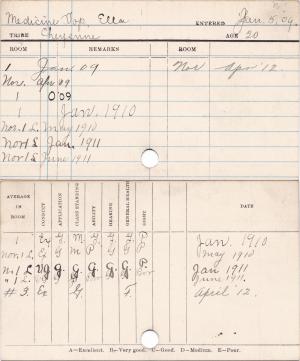 Medicine Top, Ella ENTERED Jan. 5, 09.
TRIBE Cheyenne AGE 20
ROOM REMARKS ROOM
1 Jan 09 Nor Apr '12.
Nor. Apr 09
1 O'09
1 Jan. 1910
Nor. 1 L. May 1910
Nor 1 S Jan. 1911
Nor 1 S June 1911
AVERAGE IN ROOM CONDUCT APPLICATION CLASS STANDING ABILITY HEARING GENERAL HEALTH SIGHT DATE
1 Ex G. M G. G. P Jan. 1910
Nor. 1 L Ex G M P G G P May 1910
No. 1 L VG G. G. G. G. G. P. Jan 1911
" 1 L. June 1911.
# 3. Ex G. F. April '12.
A—Excellent. B—Very good. C—Good. D—Medium. E—Poor.